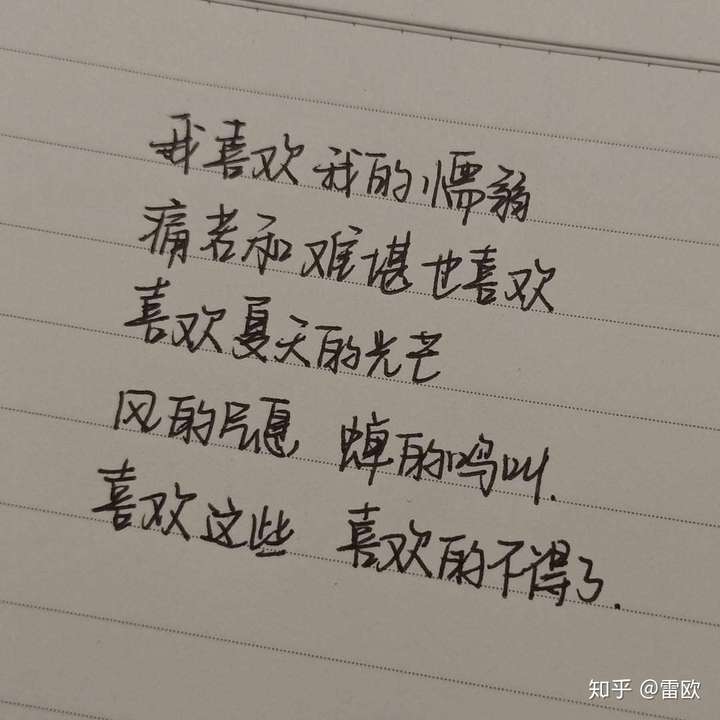 我喜欢我的懦弱
痛苦和难堪也喜欢
喜欢夏天的光芒
风的气息 蝉的鸣叫.
喜欢这些 喜欢的不得了.
知乎 @雷欧